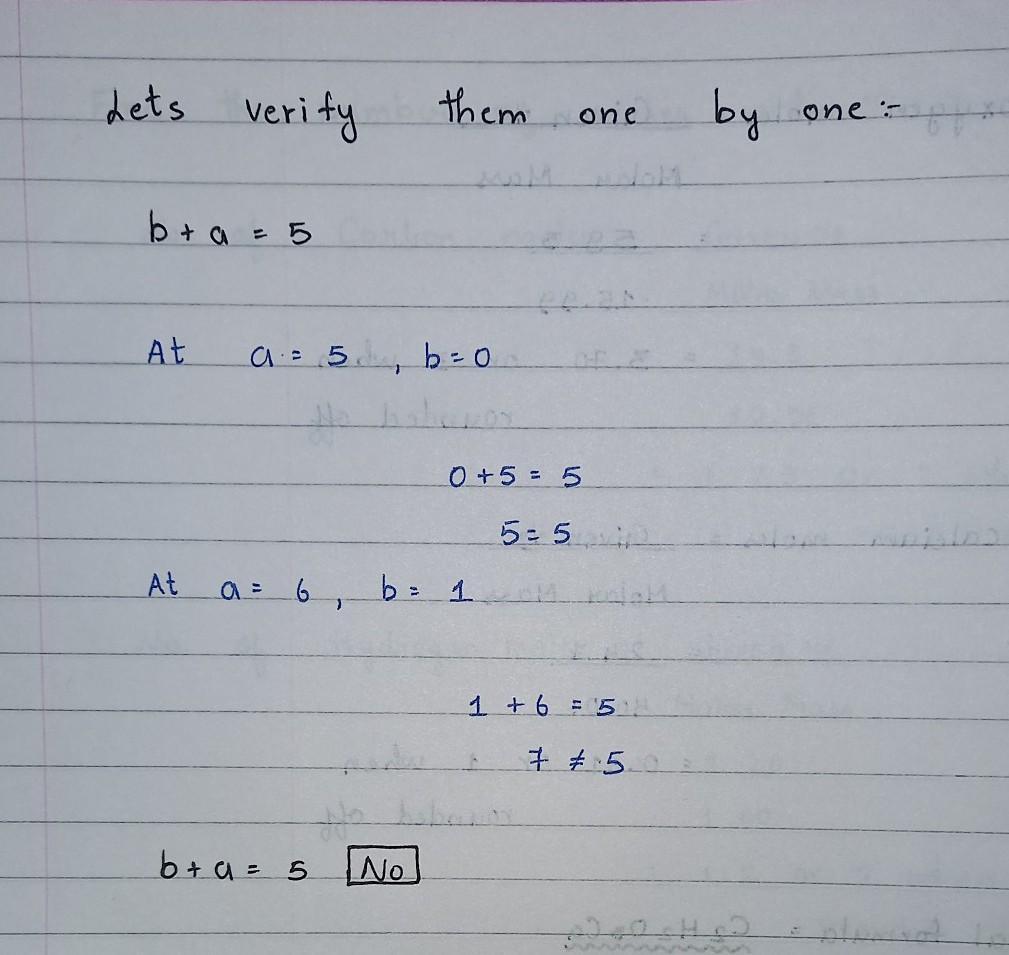 Lets verify them one by one :-
b + a = 5
At a = 5 , b = 0
0 + 5 = 5
5 = 5
At a = 6 , b = 1
1 + 6 = 5
7 ≠ 5
b + a = 5 No